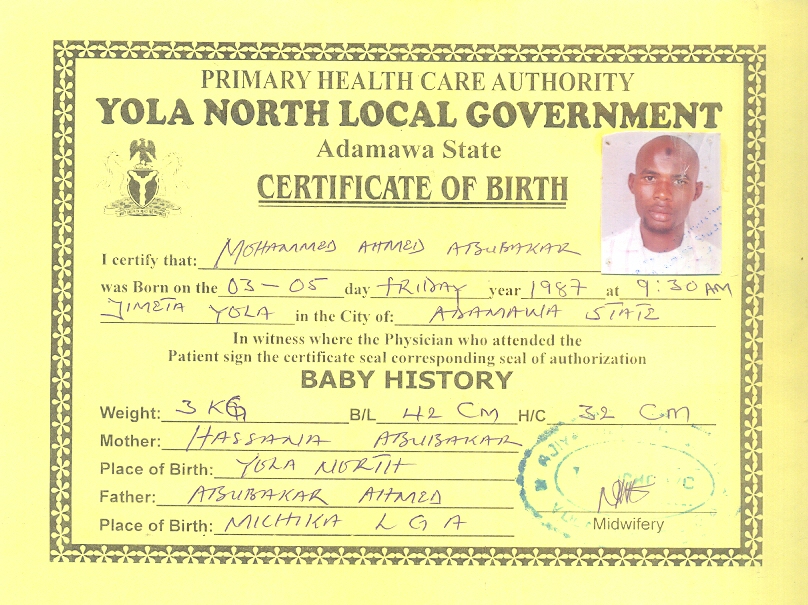 PRIMARY HEALTH CARE AUTHORITY
YOLA NORTH LOCAL GOVERNMENT
Adamawa State
CERTIFICATE OF BIRTH
I certify that: MOHAMMED AHMED ABUBAKAR
was Born on the 03-05 day FRIDAY year 1987 at 9:30 AM
JIMETA YOLA in the City of: ADAMAWA STATE
In witness where the Physician who attended the
Patient sign the certificate seal corresponding seal of authorization
BABY HISTORY
Weight: 3 KG B/L 42 CM H/C 32 CM
Mother: HASSANA ABUBAKAR
Place of Birth: YOLA NORTH
Father: ABUBAKAR AHMED
Place of Birth: MICHIKA L G A
Midwifery